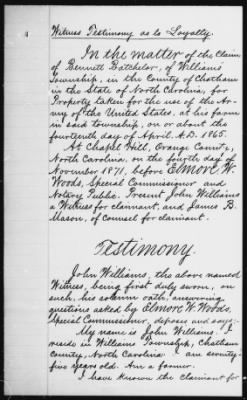 4
Witness Testimony as to Loyalty.
In the matter of the Claim
of Bennett Batchelor, of Williams
Township, in the County of Chatham
in the State of North Carolina, for
Property taken for the use of the Ar-
my of the United States, at his farm
in said township, on or about the
fourteenth day of April A.D. 1865.
At Chapel Hill, Orange County,
North Carolina, on the fourth day of
November 1871, before Elmore W.
Woods, Special Commissioner and
Notary Public. Present John Williams
a Witness for claimant, and James B.
Mason, of Counsel for claimant.
Testimony.
John Williams, the above named
Witness, being first duly sworn, on
such, his solemn oath, answering
questions asked by Elmore W. Woods,
Special Commissioner, deposes and says:
My name is John Williams. I
reside in Williams Township, Chatham
County, North Carolina am seventy-
five years old. Am a farmer.
I have known the claimant for